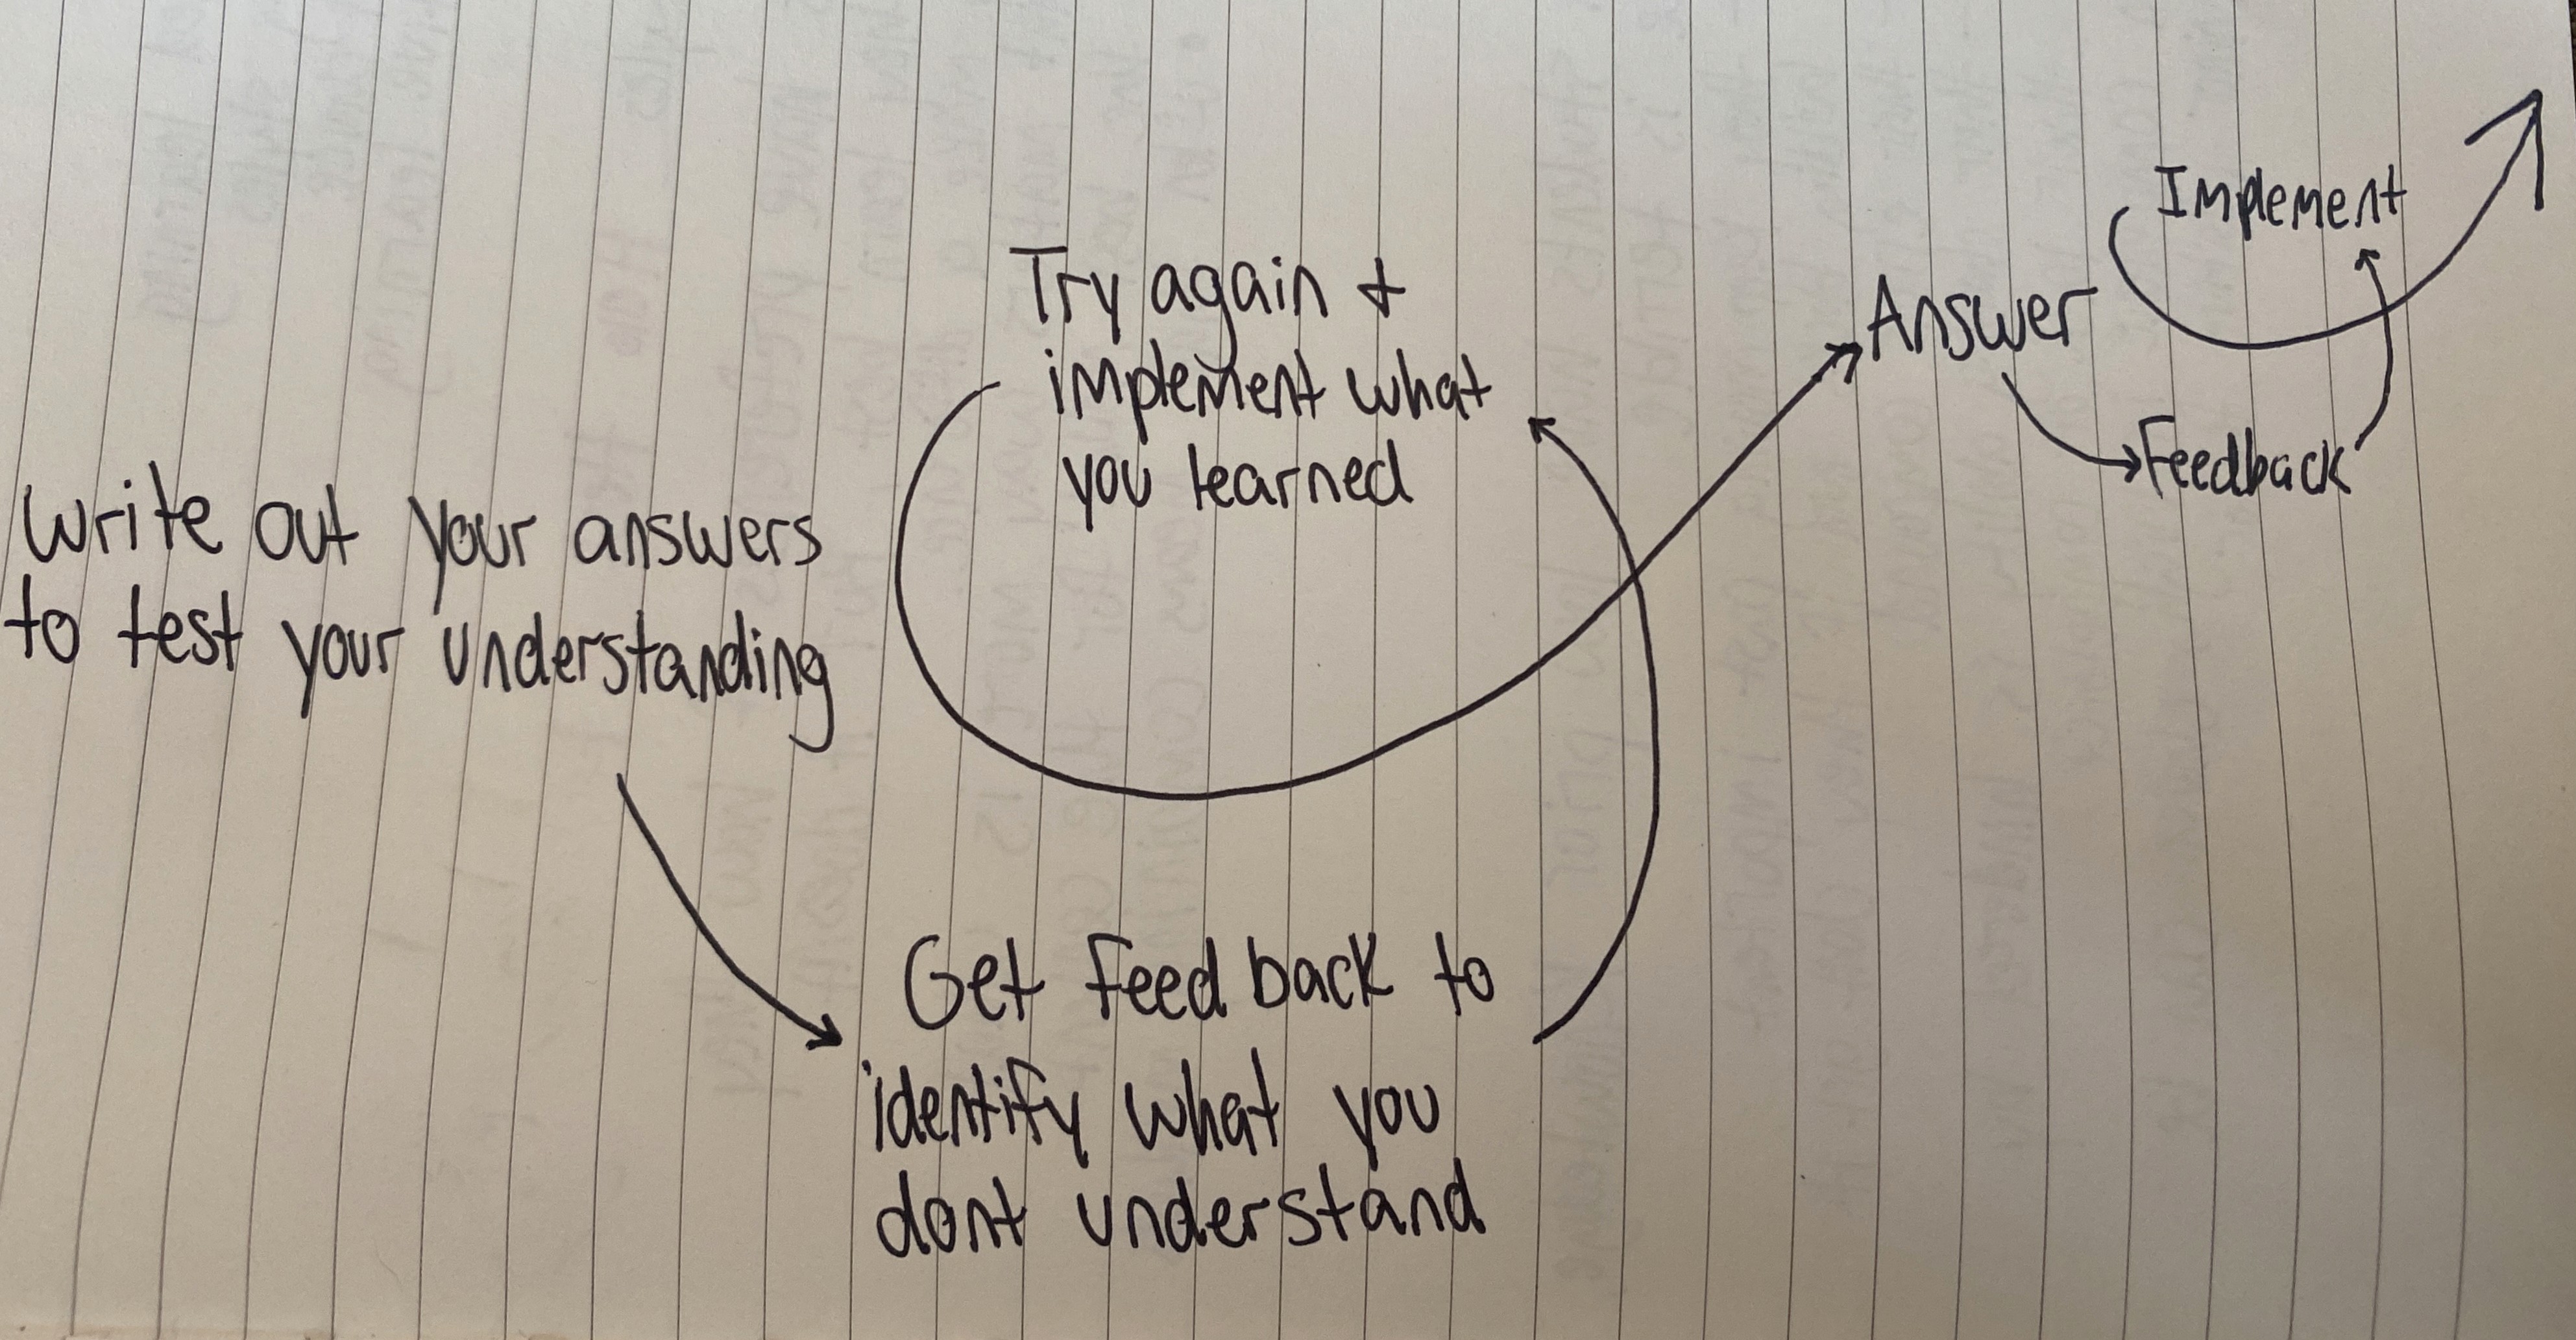 Write out your answers
to test your understanding
Get feed back to
identify what you
dont understand
Try again +
implement what
you learned
Answer
Feedback
Implement